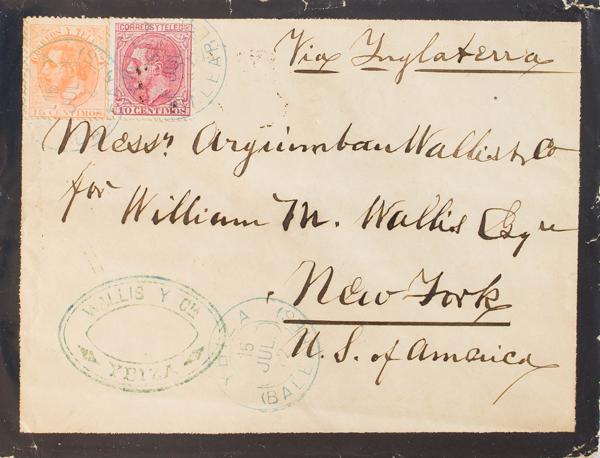 CORREOS Y TELEG
15 CENTIMOS
CORREOS Y TELEGS
10 CENTIMOS
Via Inglaterra
Messrs Arguimbau Wallis & Co
for William M. Wallis Esqre
New York
U.S. of America
WALLIS Y CIA
YBIZA
YBIZA
15
JUL
(BALE